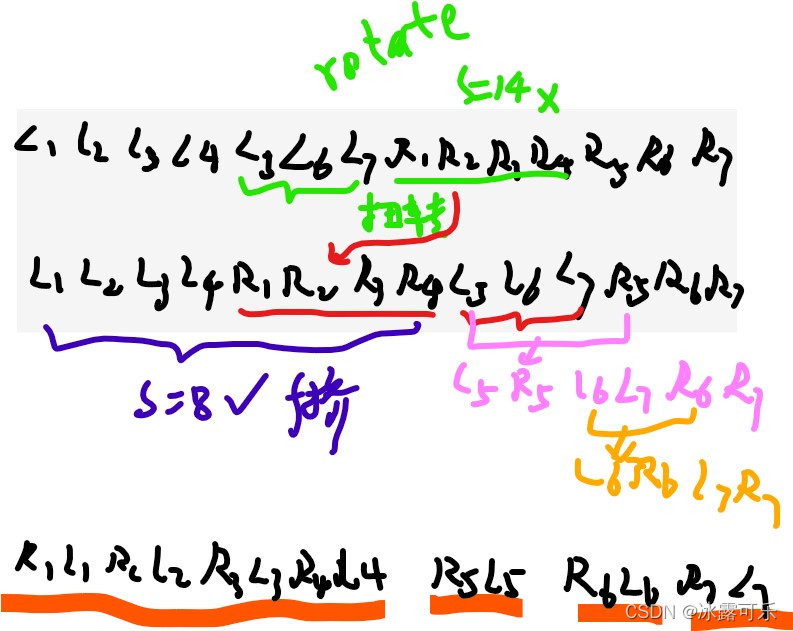 rotate
S=14 x
L1 L2 L3 L4 L5 L6 L7 R1 R2 R3 R4 R5 R6 R7
L1 L2 L3 L4 R1 R2 R3 R4 L5 L6 L7 R5 R6 R7
S=8 ✓
L5 R5 L6 L7 R6 R7
L6 R6 L7 R7
R1 L1 R2 L2 R3 L3 R4 L4 R5 L5 R6 L6 R7 L7
CSDN @冰露可乐